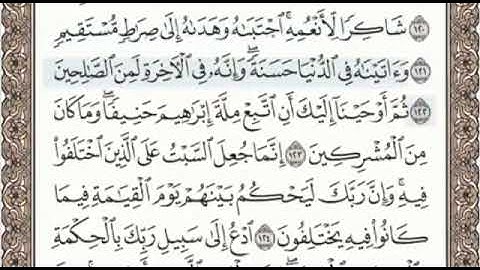 ١٢٠ شَاكِرًا لِّأَنْعُمِهِۚ ٱجْتَبَىٰهُ وَهَدَىٰهُ إِلَىٰ صِرَٰطٍ مُّسْتَقِيمٍ
١٢١ وَءَاتَيْنَٰهُ فِى ٱلدُّنْيَا حَسَنَةًۖ وَإِنَّهُۥ فِى ٱلْءَاخِرَةِ لَمِنَ ٱلصَّٰلِحِينَ
١٢٢ ثُمَّ أَوْحَيْنَآ إِلَيْكَ أَنِ ٱتَّبِعْ مِلَّةَ إِبْرَٰهِيمَ حَنِيفًاۖ وَمَا كَانَ
مِنَ ٱلْمُشْرِكِينَ ١٢٣ إِنَّمَا جُعِلَ ٱلسَّبْتُ عَلَى ٱلَّذِينَ ٱخْتَلَفُوا۟
فِيهِۚ وَإِنَّ رَبَّكَ لَيَحْكُمُ بَيْنَهُمْ يَوْمَ ٱلْقِيَٰمَةِ فِيمَا
كَانُوا۟ فِيهِ يَخْتَلِفُونَ ١٢٤ ٱدْعُ إِلَىٰ سَبِيلِ رَبِّكَ بِٱلْحِكْمَةِ